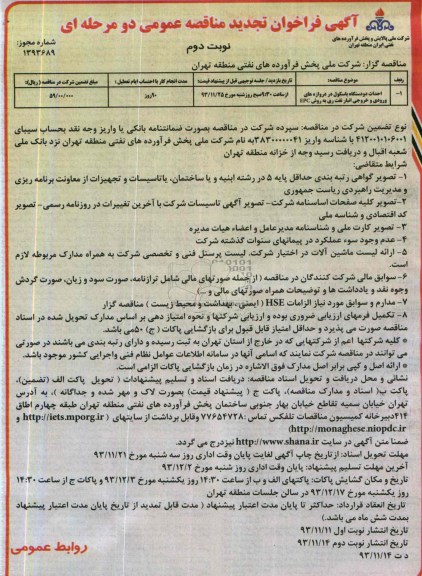 آگهی فراخوان تجدید مناقصه عمومی دو مرحله ای
شرکت ملی پالایش و پخش فرآورده های نفتی ایران منطقه تهران
نوبت دوم
شماره مجوز: ۱۳۹۳۶۸۹
مناقصه گزار: شرکت ملی پخش فرآورده های نفتی منطقه تهران
ردیف
موضوع مناقصه:
تاریخ بازدید / جلسه توجیهی قبل از پیشنهاد قیمت:
مدت انجام کار با احتساب ایام تعطیل:
مبلغ تضمین شرکت در مناقصه (ریال):
۱-
احداث دو دستگاه باسکول در دروازه های ورودی و خروجی انبار نفت ری به روش EPC
از ساعت ۹:۳۰ صبح روز شنبه مورخ ۹۳/۱۱/۲۵
۹۰ روز
نوع تضمین شرکت در مناقصه: سپرده شرکت در مناقصه بصورت ضمانتنامه بانکی یا واریز وجه نقد بحساب سیبای
به نام شرکت ملی پخش فرآورده های نفتی منطقه تهران نزد بانک ملی
شعبه اقبال و دریافت رسید وجه از خزانه منطقه تهران
شرایط متقاضی:
۱- تصویر گواهی رتبه بندی حداقل پایه ۵ در رشته ابنیه و یا ساختمان، یا تاسیسات و تجهیزات از معاونت برنامه ریزی
و مدیریت راهبردی ریاست جمهوری
۲- تصویر کلیه صفحات اساسنامه شرکت- تصویر آگهی تاسیسات شرکت با آخرین تغییرات در روزنامه رسمی- تصویر
کد اقتصادی و شناسه ملی
۳- تصویر کارت ملی و شناسنامه مدیرعامل و اعضاء هیات مدیره
۴- عدم وجود سوء عملکرد در پیمانهای سنوات گذشته شرکت
۵- ارائه لیست ماشین آلات در اختیار شرکت، لیست پرسنل فنی و تخصصی شرکت به همراه مدارک مربوطه لازم
است.
۶- سوابق مالی شرکت کنندگان در مناقصه ( از جمله صورتهای مالی شامل ترازنامه، صورت سود و زیان، صورت گردش
وجوه نقد و یادداشت ها و توضیحات همراه صورتهای مالی و ...)
۷- مدارم و سوابق مورد نیاز الزامات HSE ( ایمنی، بهداشت و محیط زیست ) مناقصه گزار
۸- تکمیل فرمهای ارزیابی ضروری بوده و ارزیابی شرکتها و نحوه امتیاز دهی بر اساس مدارک تحویل شده در اسناد
مناقصه صورت می پذیرد و حداقل امتیاز قابل قبول برای بازگشایی پاکات ( ج ) ۵۰ می باشد.
* کلیه شرکتها اعم از شرکتهایی که در خارج از استان تهران به ثبت رسیده و دارای رتبه بندی می باشند در صورتی
می توانند در مناقصه شرکت نمایند که اسامی آنها در سامانه اطلاعات عوامل نظام فنی و اجرایی کشور موجود باشد.
* ارائه اصل و کپی برابر اصل مدارک فوق الاشاره در زمان بازگشایی پاکات الزامی است.
نشانی و محل دریافت و تحویل اسناد مناقصه: دریافت اسناد و تسلیم پیشنهادات ( تحویل پاکت الف (تضمین)،
پاکت ب( اسناد و مدارک مناقصه)، پاکت ج ( پیشنهاد قیمت) بصورت لاک و مهر شده و جداگانه )، به آدرس
تهران خیابان سمیه تقاطع خیابان بهار جنوبی ساختمان پخش فرآورده های نفتی منطقه تهران طبقه چهارم اطاق
۴۱۴ دبیرخانه کمیسیون مناقصات تلفکس تماس :۷۷۶۵۴۷۲۸ وقابل برداشت از سایتهای ( http://iets.mporg.ir و
http://monaghese.niopdc.ir)
ضمنا متن آگهی در سایت http://www.shana.ir نیز درج می گردد.
مهلت تحویل اسناد: از تاریخ چاپ آگهی لغایت پایان وقت اداری روز سه شنبه مورخ ۹۳/۱۱/۲۱
آخرین مهلت تسلیم پیشنهاد: پایان وقت اداری روز شنبه مورخ ۹۳/۱۲/۲
تاریخ و مکان گشایش پاکات: پاکتهای الف و ب از ساعت ۱۴:۳۰ روز یکشنبه مورخ ۹۳/۱۲/۳ و پاکات ج از ساعت ۱۴:۳۰
روز یکشنبه مورخ ۹۳/۱۲/۱۷ در سالن جلسات منطقه تهران
تاریخ انعقاد قرارداد: حداکثر تا پایان مدت اعتبار پیشنهاد ( مدت قابل تمدید از تاریخ پایان مدت اعتبار پیشنهاد
بمدت شش ماه می باشد.)
تاریخ انتشار نوبت اول ۹۳/۱۱/۱۱
تاریخ انتشار نوبت دوم ۹۳/۱۱/۱۴
د ت ۹۳/۱۱/۱۴
روابط عمومی